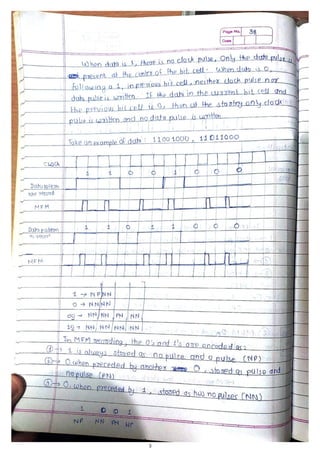 Page No. 38
Date
When data is 1, there is no clock pulse. Only the data pulse is
present at the center of the bit cell. When data is 0,
following a 1, in previous bit cell, neither clock pulse nor
data pulse is written. If the data in the current bit cell and
the previous bit cell is 0, then at the starting only clock
pulse is written and no data pulse is written.
Take an example of data : 11001000, 11011000
CLOCK
1 1 0 0 1 0 0 0
Data pattern
MFM
Data pattern
1 1 0 1 1 0 0 0
MFM
1 → NP NN
0 → NN NN
00 → NN NN PN NN
10 → NN NN NN NN
In MFM recording, the 0's and 1's are encoded as :
① → 1 is always stored as no pulse and a pulse (NP)
② → 0 when preceded by another 0, stored as pulse and
no pulse (PN)
③ → 0 when preceded by 1, stored as two no pulses (NN)
1 0 0 1
NP NN PN NP